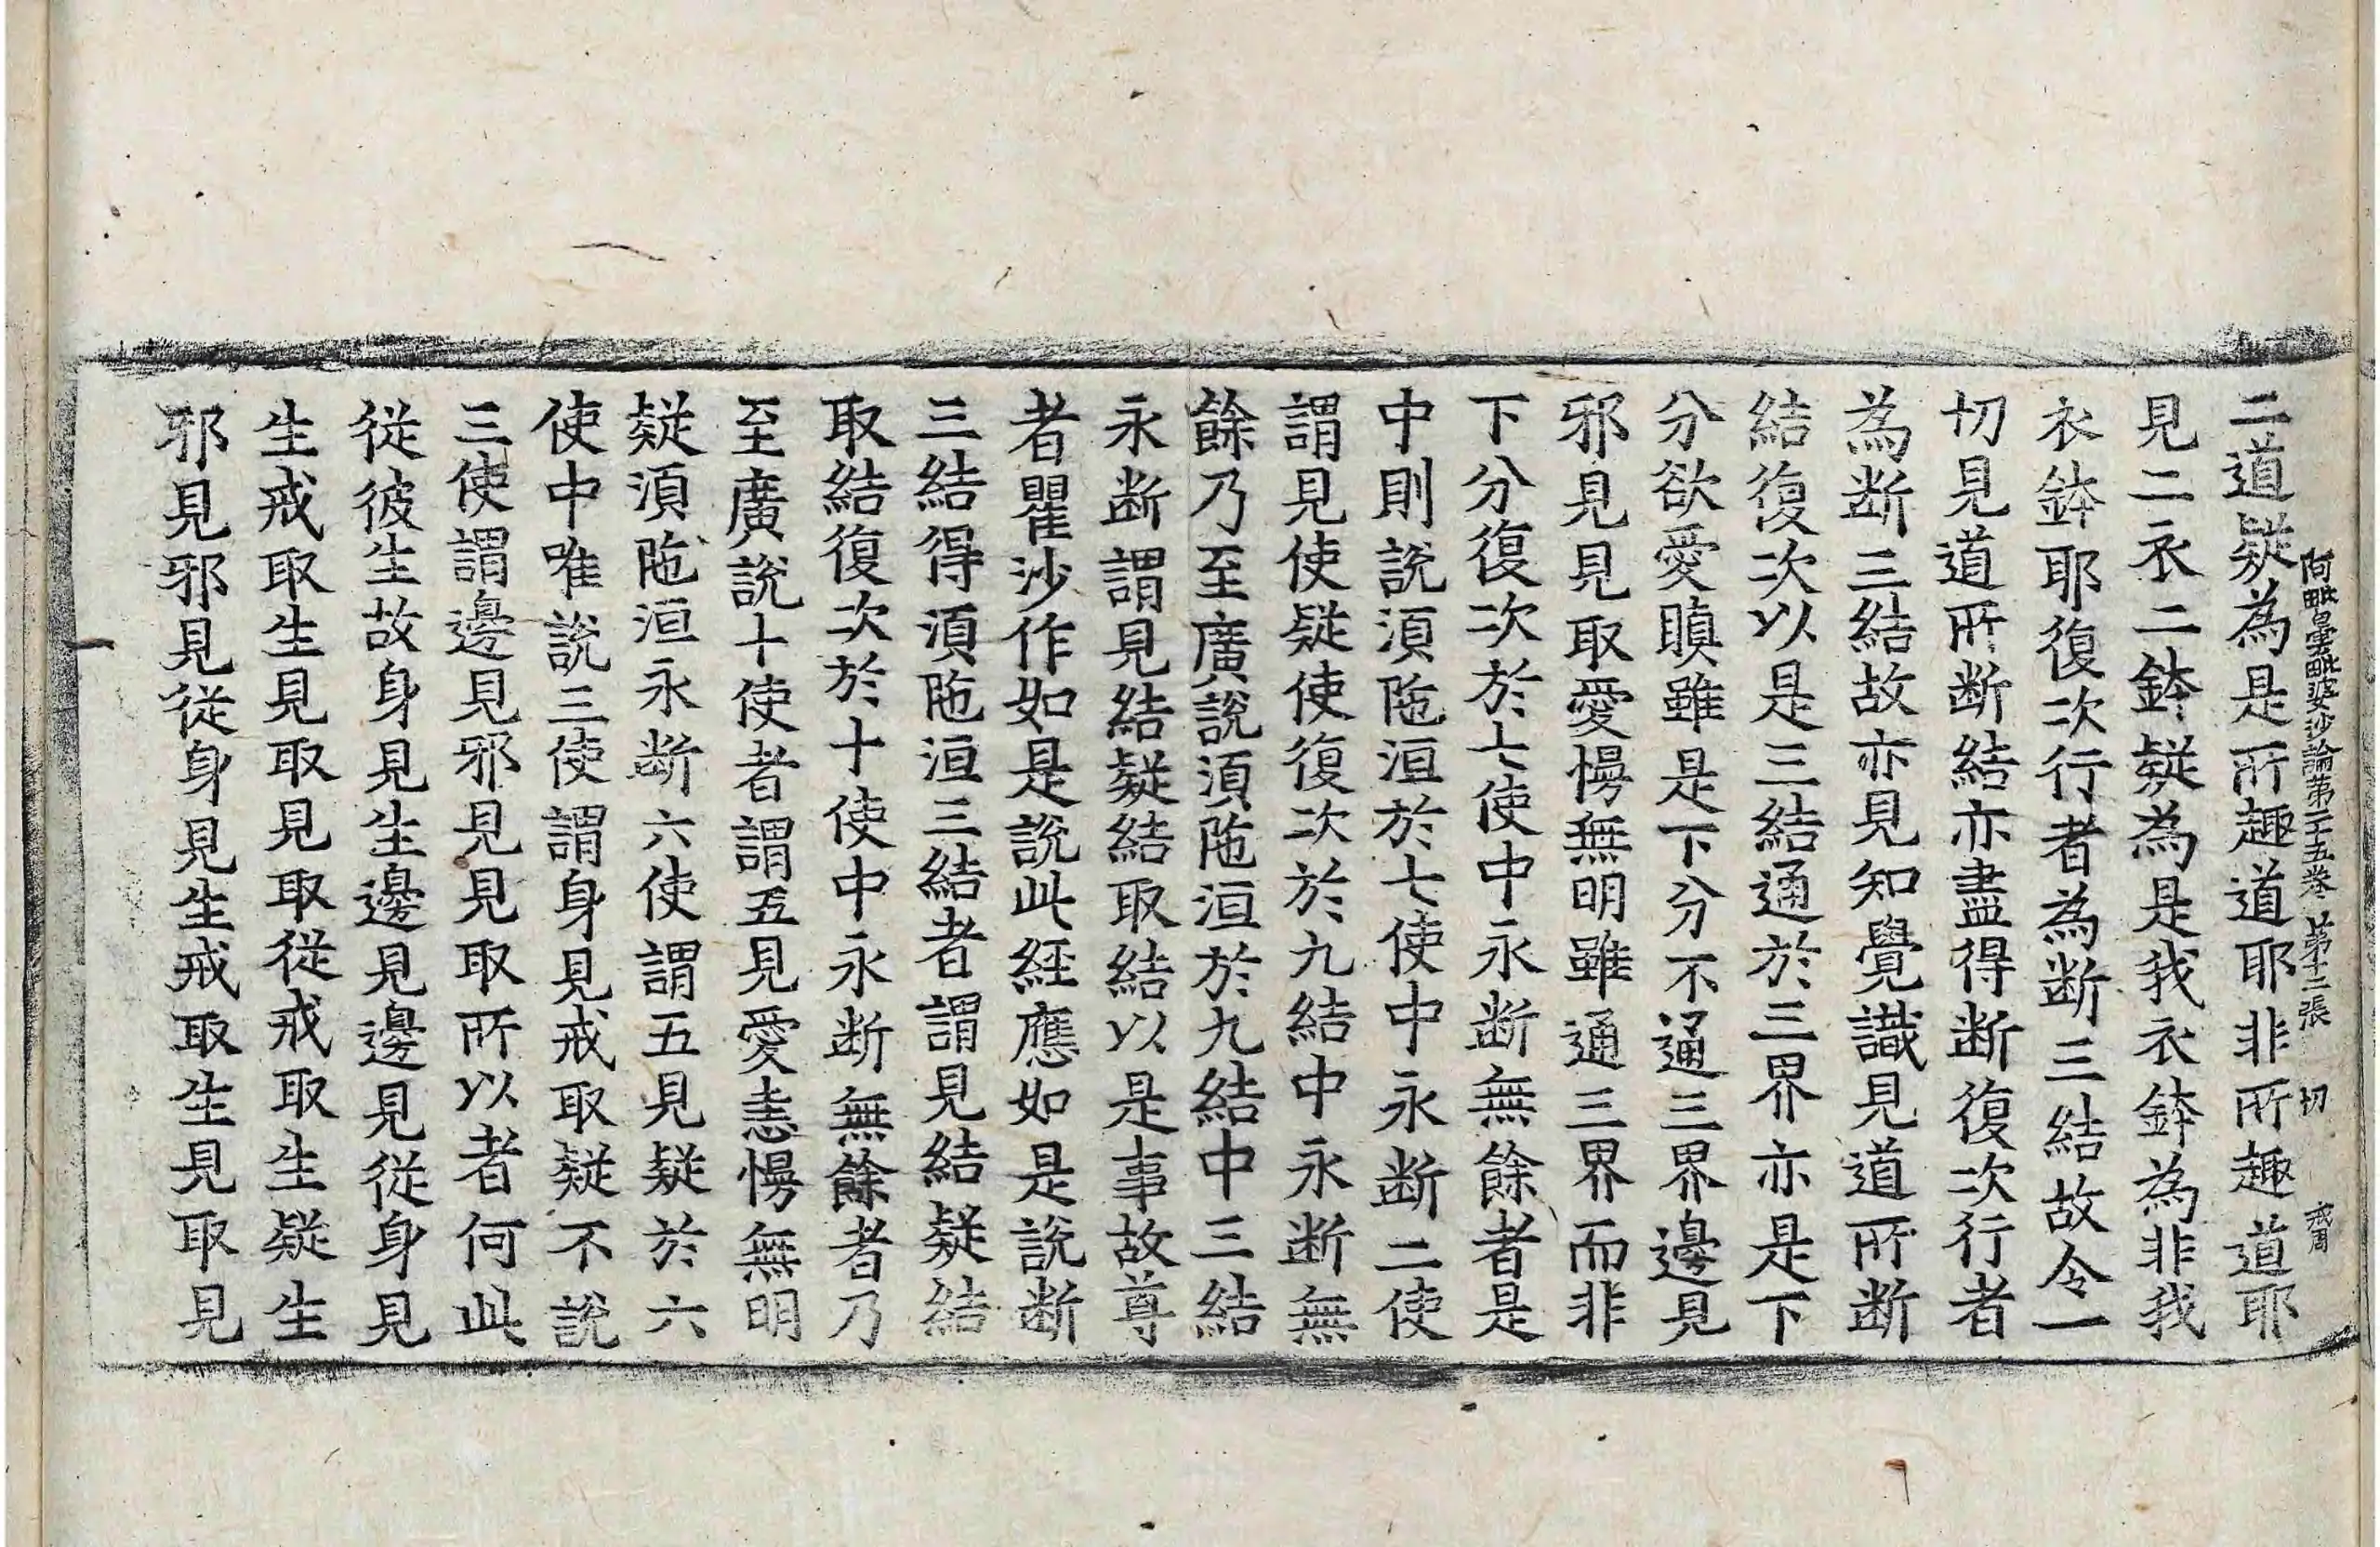 阿毗曇毗婆沙論第二十五卷 第十二張 切 戒周
二道疑為是所趣道耶非所趣道耶
見二衣二鉢疑為是我衣鉢為非我
衣鉢耶復次行者為斷三結故令一
切見道所斷結亦盡得斷復次行者
為斷三結故亦見知覺識見道所斷
結復次以是三結通於三界亦是下
分欲愛瞋雖是下分不通三界邊見
邪見見取愛慢無明雖通三界而非
下分復次於七使中永斷無餘者是
中則說須陁洹於七使中永斷二使
謂見使疑使復次於九結中永斷無
餘乃至廣說須陁洹於九結中三結
永斷謂見結疑結取結以是事故尊
者瞿沙作如是說此經應如是說斷
三結得須陁洹三結者謂見結疑結
取結復次於十使中永斷無餘者乃
至廣說十使者謂五見愛恚慢無明
疑須陁洹永斷六使謂五見疑於六
使中唯說三使謂身見戒取疑不說
三使謂邊見邪見見取所以者何此
從彼生故身見生邊見邊見從身見
生戒取生見取見取從戒取生疑生
邪見邪見從身見生戒取生見取見